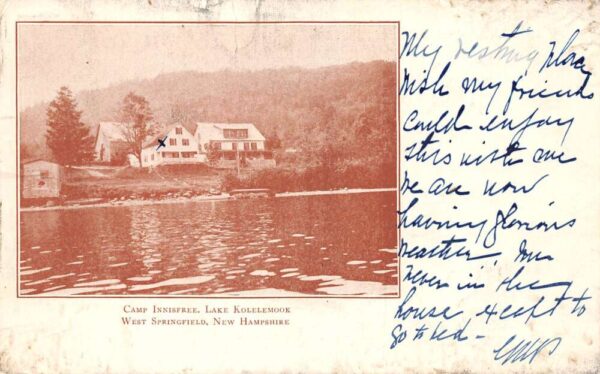 My resting place
Wish my friends
could enjoy
this with me
We are now
having glorious
weather, Im
never in the
house, except to
go to bed -
CAMP INNISFREE, LAKE KOLELEMOOK
WEST SPRINGFIELD, NEW HAMPSHIRE